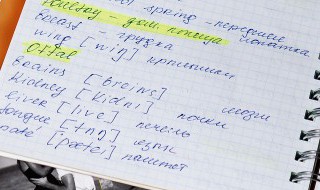 spring - передняя лопатка
Poultry - дом. птица
breast - грудка
wing [wiŋ] крылышки
Offal
Brains [breins] мозги
Kidney [kidni] почки
liver [live] печень
tongue [tʌŋ] язык
pate [pætei] паштет